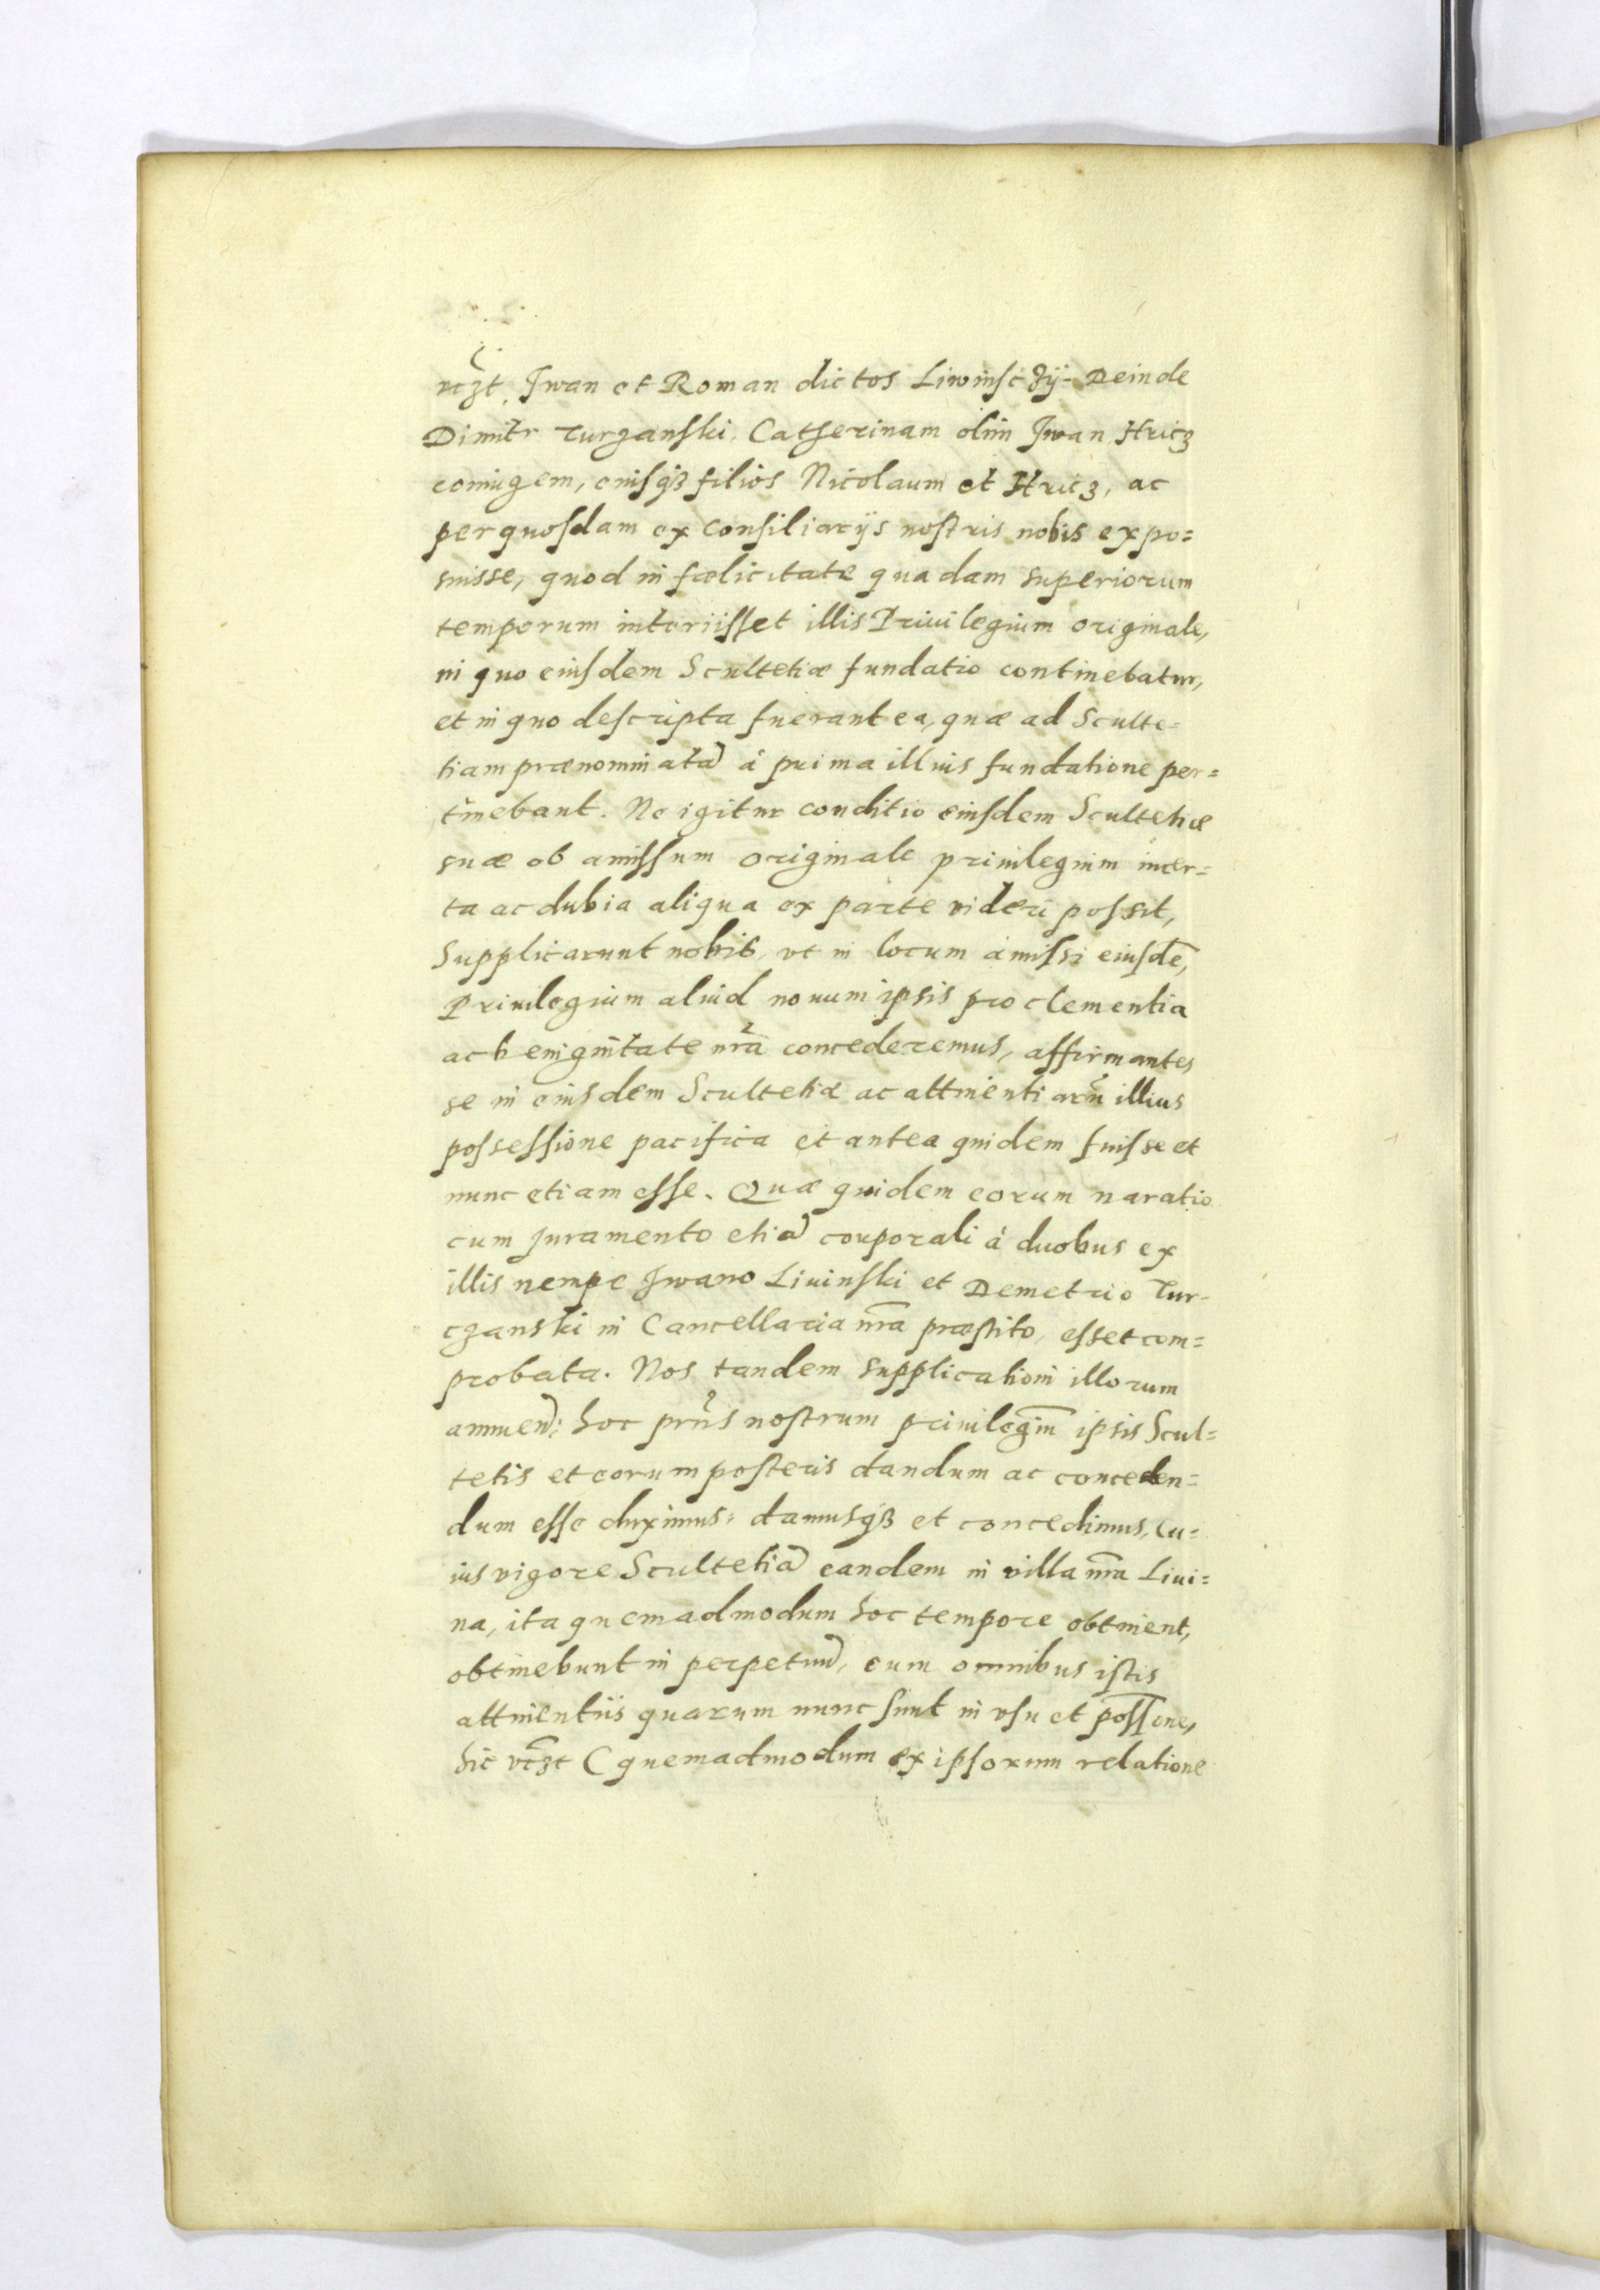 vtzt. Iwan et Roman dictos Liwinsczÿ. Deinde
Dimitr Turzanski, Catherinam olim Iwan Hricz
coniugem, eiusqȝ filios Nicolaum et Hricz, ac
per quosdam ex Consiliarijs nostris nobis expo=
suisse, quod infœlicitate quadam superiorum
temporum interiisset illis Priuilegium originale,
in quo eiusdem Scultetiæ fundatio continebatur,
et in quo descripta fuerant ea, quæ ad Sculte=
tiam prænominatã à prima illius fundatione per=
tinebant. Ne igitur conditio eiusdem Scultetiæ
suæ ob amissum originale priuilegium incer=
ta ac dubia aliqua ex parte videri possit,
Supplicarunt nobis, vt in locum amissi eiusdẽ,
Priuilegium aliud nouum ipsis pro clementia
ac benignitate nrã concederemus, affirmantes
se in eiusdem Scultetiæ ac attinentiarũ illius
possessione pacifica et antea quidem fuisse et
nunc etiam esse. Quæ quidem eorum naratio
cum juramento etiã corporali à duobus ex
illis nempe Iwano Liuinski et Demetrio Tur-
czanski in Cancellaria nrã præstito, esset com=
probata. Nos tandem supplicationi illorum
annuen̄: hoc prñs nostrum priuilegiũ ipsis Scul=
tetis et eorum posteris dandum ac conceden=
dum esse duximus: damusqȝ et concedimus, Cu=
ius vigore Scultetiã eandem in villa nrã Liui=
na, ita quemadmodum hoc tempore obtinent,
obtinebunt in perpetuũ, cum omnibus istis
attinentiis quarum nunc sunt in vsu et possone,
hic vtzt (quemadmodum ex ipsorum relatione